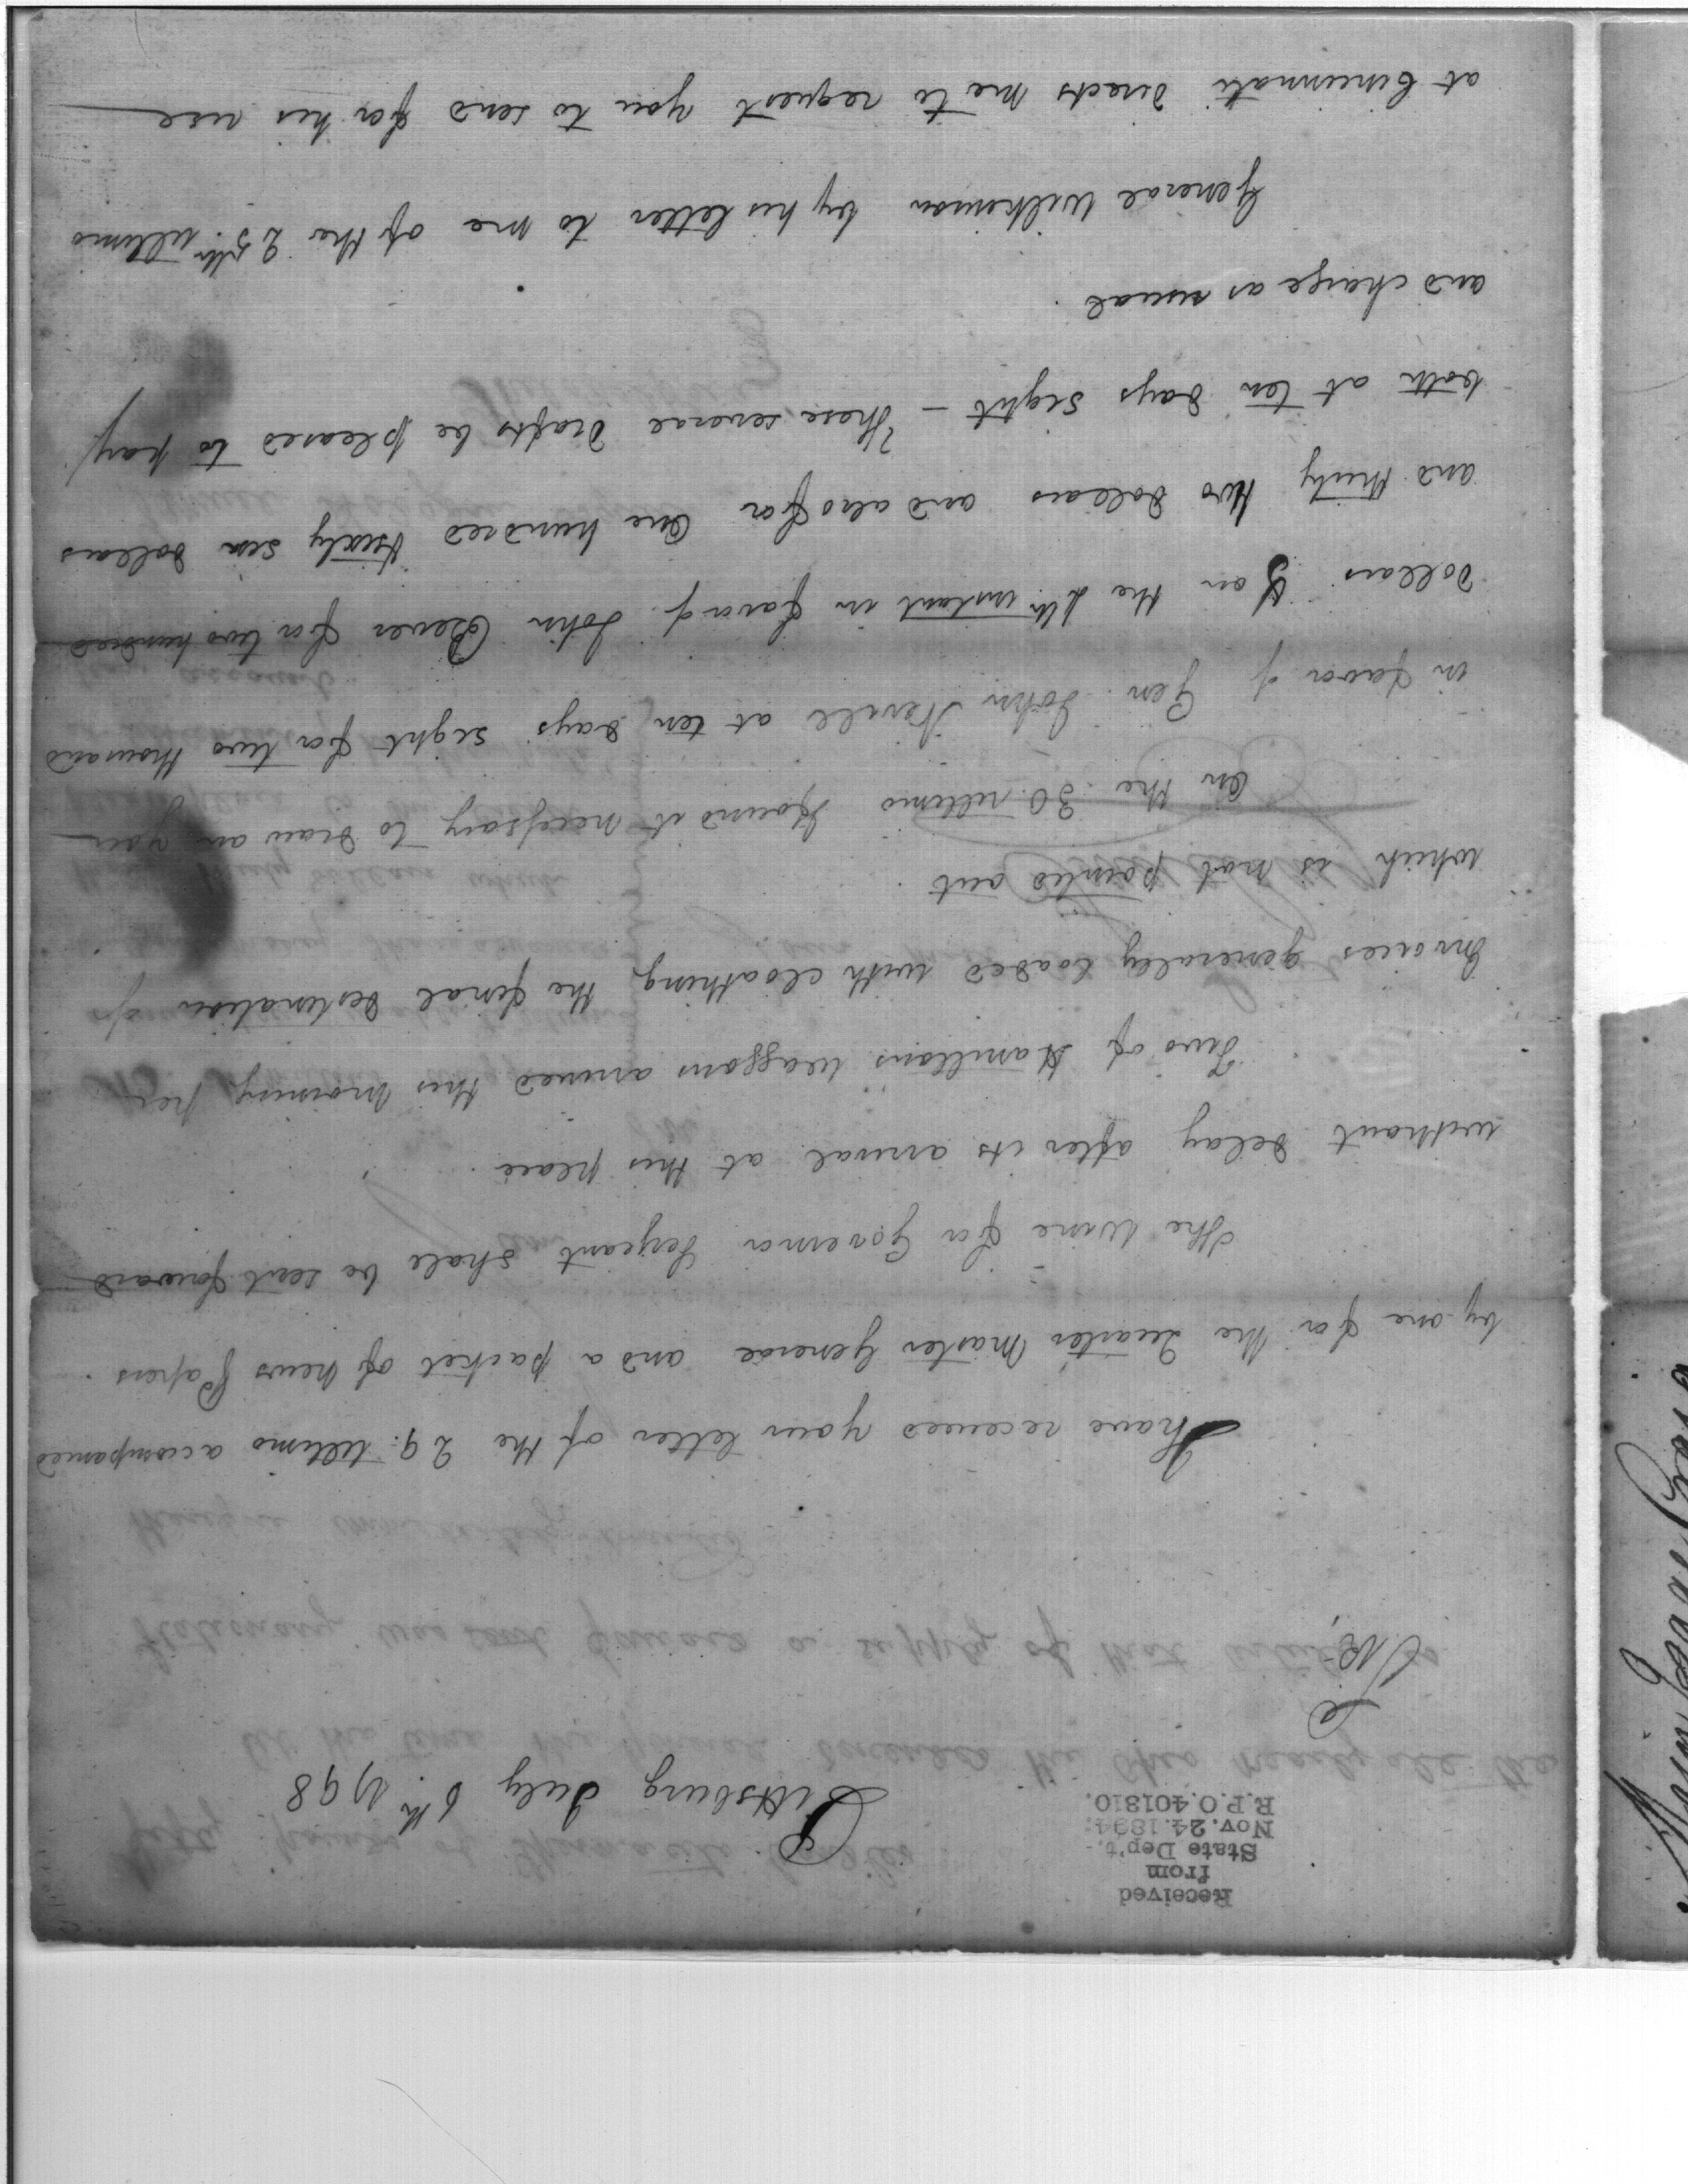 Received
from
State Dep't,
Nov. 24. 1894;
R.P.O. 401810.
Pittsburg July 6th 1798
Sir,
I have received your letter of the 29. Ultimo accompanied
by one for the Quarter Master General and a packet of news Papers.
The wine for Governor Serjeant shall be sent forward
without delay after its arrival at this place.
Two of Hamiltons Waggons arrived this morning per
Invoices generally loaded with cloathing the final destination of
which is not pointed out.
On the 30 ultimo I found it necessary to draw on you
in favor of Gen. John Nevill at ten days sight for two thousand
dollars. & on the instant in favor of John Bever for two hundred
and thirty two dollars and also for One hundred sixty six dollars
both at ten days sight - These several drafts be pleased to pay
and charge as usual.
General Wilkinson by his letter to me of the 25th. ultimo
at Cincinnati directs me to request you to send for his use